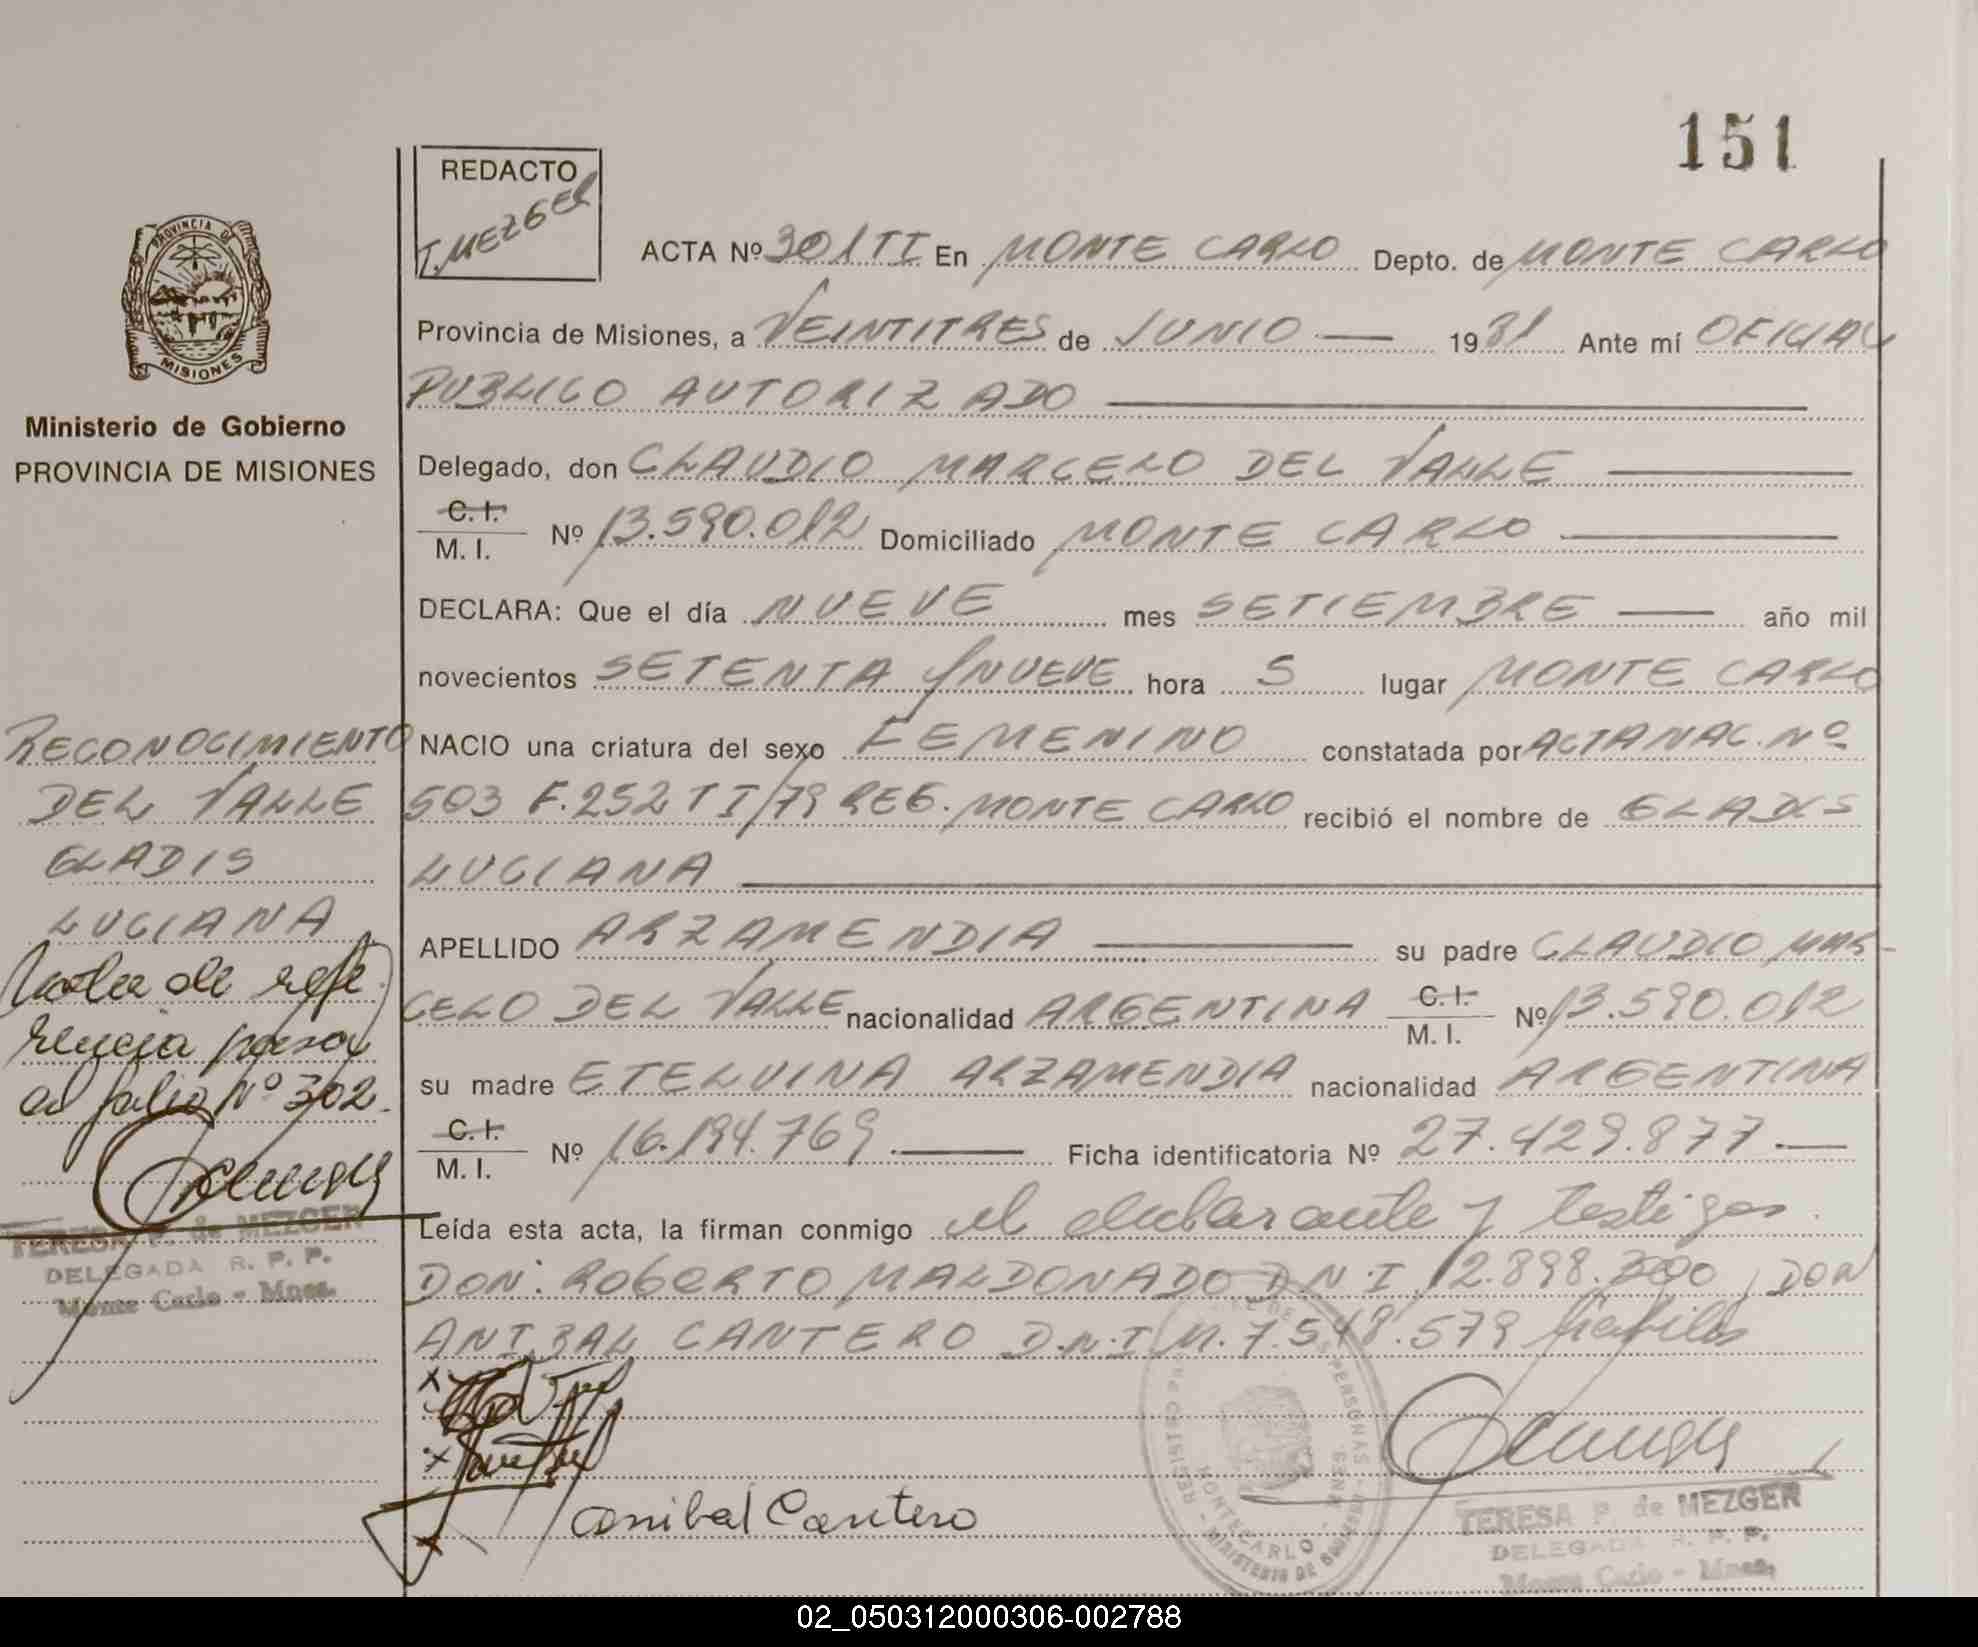 151
REDACTO
T. MEZGER
ACTA Nº 301 TI En MONTE CARLO Depto. de MONTE CARLO
PROVINCIA DE
MISIONES
Provincia de Misiones, a VEINTITRES de JUNIO — 1981 Ante mí OFICIAL
PUBLICO AUTORIZADO
Ministerio de Gobierno
PROVINCIA DE MISIONES
Delegado, don CLAUDIO MARCELO DEL VALLE
C. I.
M. I. Nº 13.590.012 Domiciliado MONTE CARLO
DECLARA: Que el día NUEVE mes SETIEMBRE — año mil
novecientos SETENTA Y NUEVE hora 5 lugar MONTE CARLO
NACIO una criatura del sexo FEMENINO constatada por ACTA NAC. Nº
503 F. 252 T I/79 REG. MONTE CARLO recibió el nombre de GLADIS
LUCIANA
APELLIDO ARZAMENDIA su padre CLAUDIO MAR-
CELO DEL VALLE nacionalidad ARGENTINA C. I. M. I. Nº 13.590.012
su madre ETELVINA ARZAMENDIA nacionalidad ARGENTINA
C. I.
M. I. Nº 16.194.769.— Ficha identificatoria Nº 27.429.877.—
Leída esta acta, la firman conmigo el declarante y testigos.
DON: ROBERTO MALDONADO D.N.I 12.898.300, DON
ANIBAL CANTERO D.N.I M. 7.548.579 habiles
RECONOCIMIENTO
DEL VALLE
GLADIS
LUCIANA
Nota de refe
rencia pasa
al folio Nº 302.
TERESA P. de MEZGER
DELEGADA R. P. P.
Monte Carlo - Mnes.
Anibal Cantero
MONTECARLO
TERESA P. de MEZGER
DELEGADA R. P. P.
Monte Carlo - Mnes.
02_050312000306-002788